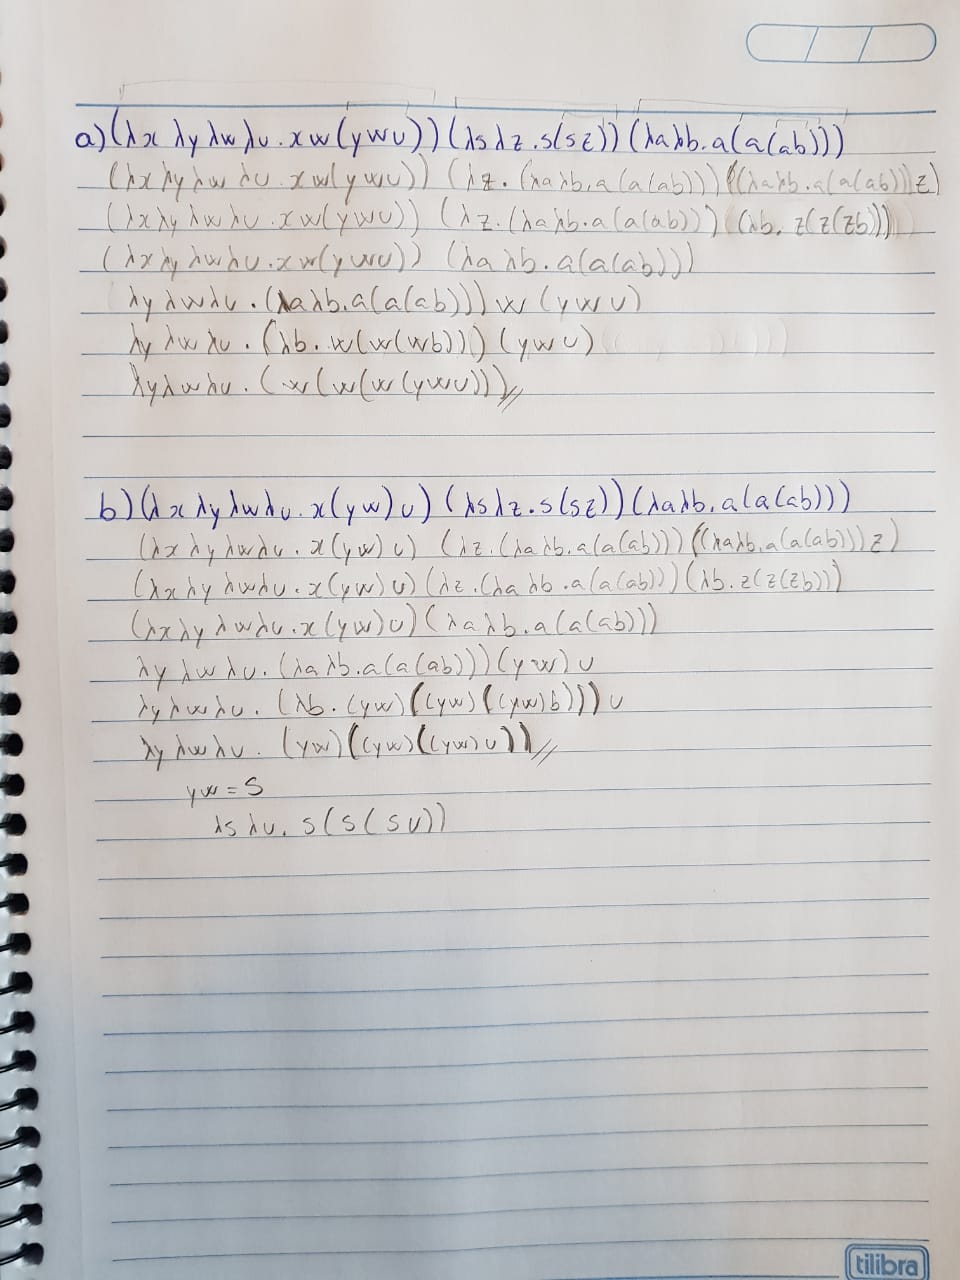 / /
a) (λx λy λw λu. xw(ywu)) (λsλz. s(sz)) (λaλb. a(a(ab)))
(λx λy λw λu. xw(ywu)) (λz. (λaλb. a(a(ab))) ((λaλb. a(a(ab))) z)
(λx λy λw λu. xw(ywu)) (λz. (λaλb. a(a(ab))) (λb. z(z(zb)))
(λx λy λwλu. xw(ywu)) (λaλb. a(a(ab)))
λy λwλu. (λaλb. a(a(ab))) w (ywu)
λy λw λu. (λb. w(w(wb))) (ywu)
λyλwλu. (w(w(w(ywu)))//
b) (λx λy λwλu. x(yw)u) (λsλz. s(sz)) (λaλb. a(a(ab)))
(λx λy λwλu. x(yw)u) (λz. (λaλb. a(a(ab))) ((λaλb. a(a(ab))) z)
(λx λy λwλu. x(yw)u) (λz. (λaλb. a(a(ab))) (λb. z(z(zb)))
(λxλy λwλu. x(yw)u) (λaλb. a(a(ab)))
λy λwλu. (λaλb. a(a(ab))) (yw) u
λyλwλu. (λb. (yw)((yw)((yw)b))) u
λy λwλu. (yw)((yw)((yw)u))//
yw = s
λs λu. s(s(su))
tilibra